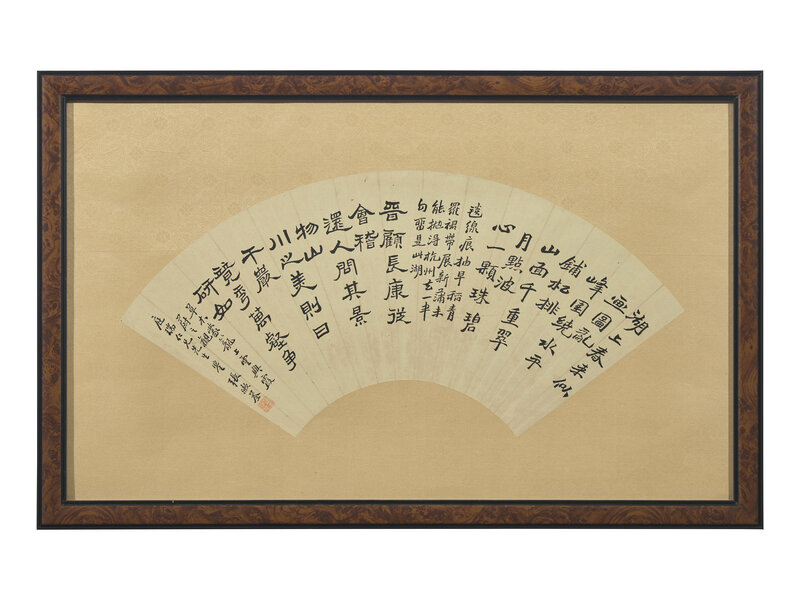 湖上春来似
畫圖亂
峰圍繞水平
鋪松排
山面千重翠
月點波
心一顆珠碧
毯線痕抽早稻青
羅裙帶展新蒲未
能拋得杭州去一半
勾留是此湖
晉顧長康從
會稽
還人問其景
物山
川之美則曰
千巖
競秀萬壑爭
草木蒙籠上雲興霞